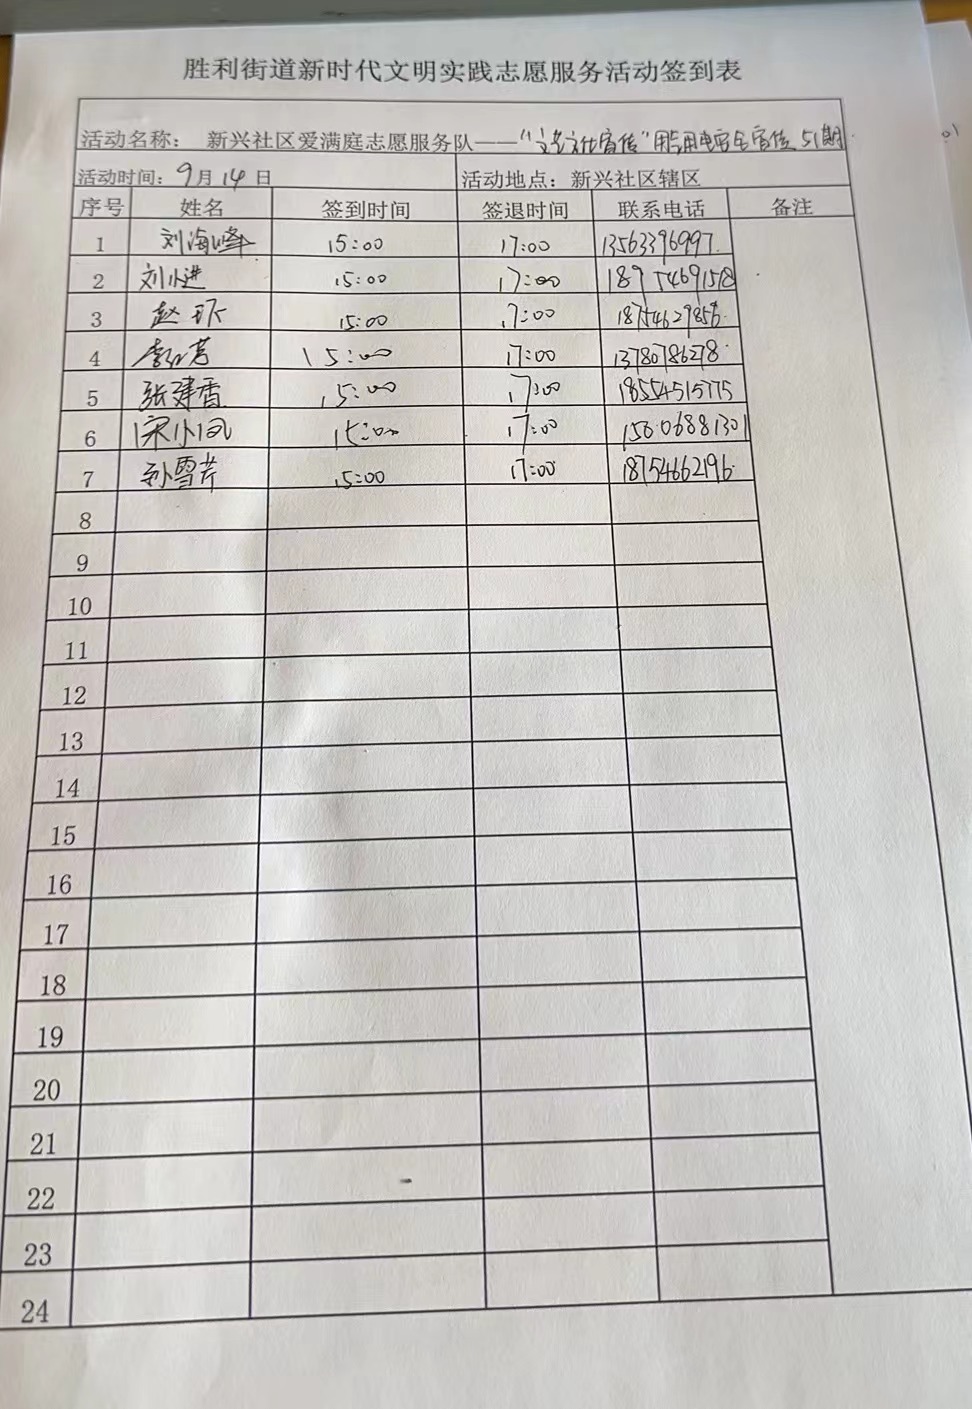 胜利街道新时代文明实践志愿服务活动签到表
活动名称： 新兴社区爱满庭志愿服务队——“文艺文化宣传”用气用电安全宣传 51期
活动时间：9月14日 活动地点：新兴社区辖区
序号 姓名 签到时间 签退时间 联系电话 备注
1 刘海峰 15:00 17:00 13563396997
2 刘小进 15:00 17:00 18954691518
3 赵环 15:00 17:00 18754629856
4 李红芳 15:00 17:00 13780786278
5 张建香 15:00 17:00 18554515775
6 宋小凤 15:00 17:00 15606881301
7 孙雪芹 15:00 17:00 18754662196
8
9
10
11
12
13
14
15
16
17
18
19
20
21
22
23
24